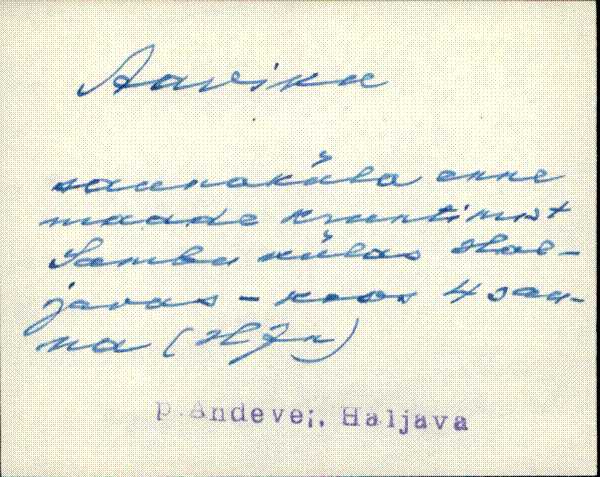 Aaviku
saunaküla enne
maade kruntimist
Sambu külas Hal-
javas - koos 4 sau-
na (HJn)
P. Andevei, Haljava